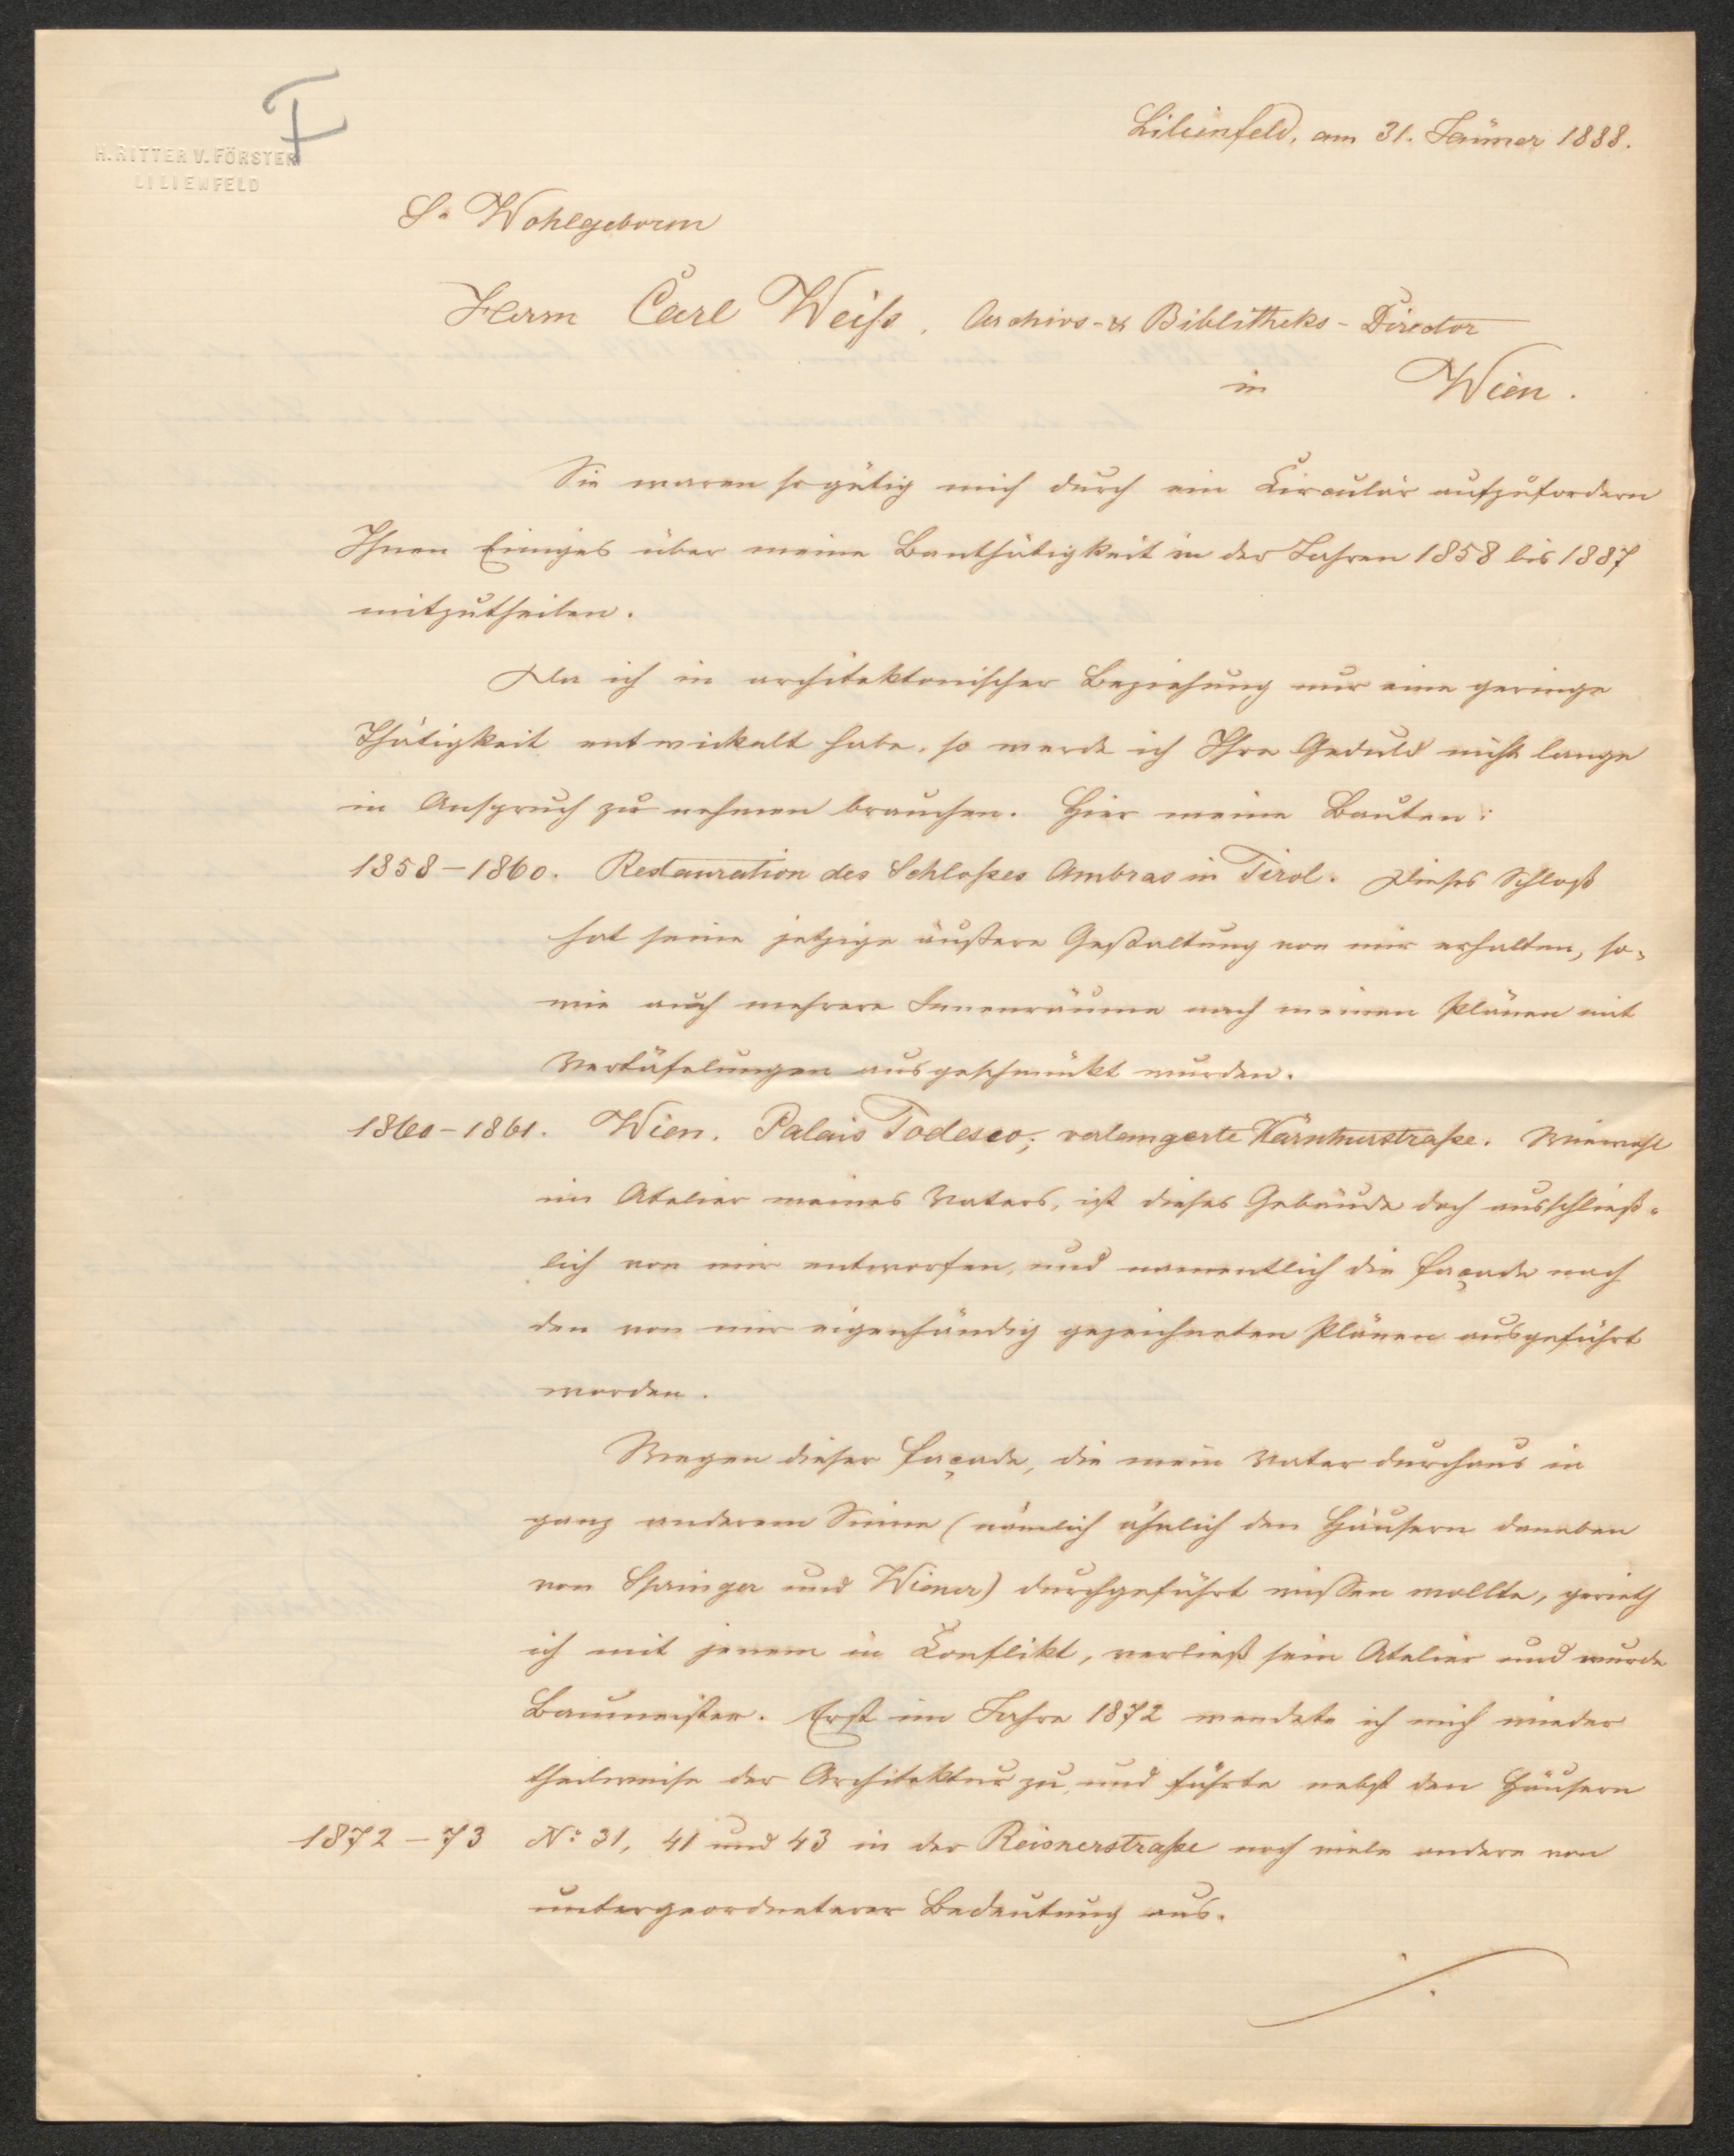 F
H. RITTER V. FÖRSTER
LILIENFELD
Lilienfeld, am 31. Jänner 1888.
Sr Wohlgeboren
Herrn Carl Weiß, Archivs- & Biblitheks-Director
in Wien.
Sie waren so gütig mich durch ein Circulär aufzufordern
Ihnen Einiges über meine Bauthätigkeit in den Jahren 1858 bis 1887
mitzutheilen.
Da ich in architektonischer Beziehung nur eine geringe
Thätigkeit entwickelt habe, so werde ich Ihre Geduld nicht lange
in Anspruch zu nehmen brauchen. Hier meine Bauten:
1858-1860. Restauration des Schloßes Ambras in Tirol. Dieses Schloß
hat seine jetzige äußere Gestaltung von mir erhalten, so-
wie auch mehrere Innenräume nach meinen Plänen mit
Vertäfelungen ausgeschmückt wurden.
1860-1861. Wien. Palais Todesco; verlängerte Kärntnerstraße. Wiewohl
im Atelier meines Vaters, ist dieses Gebäude doch ausschließ-
lich von mir entworfen, und namentlich die Façade nach
den von mir eigenhändig gezeichneten Plänen ausgeführt
worden.
Wegen dieser Façade, die mein Vater durchaus in
ganz anderem Sinne (nämlich ähnlich den Häusern daneben
von Springer und Wiener) durchgeführt wissen wollte, gerieth
ich mit jenem in Conflikt, verließ sein Atelier und wurde
Baumeister. Erst im Jahre 1872 wendete ich mich wieder
theilweise der Architektur zu, und führte nebst den Häusern
1872-73 No 31, 41 und 43 in der Reisnerstraße noch viele andere von
untergeordneterer Bedeutung aus.
./.